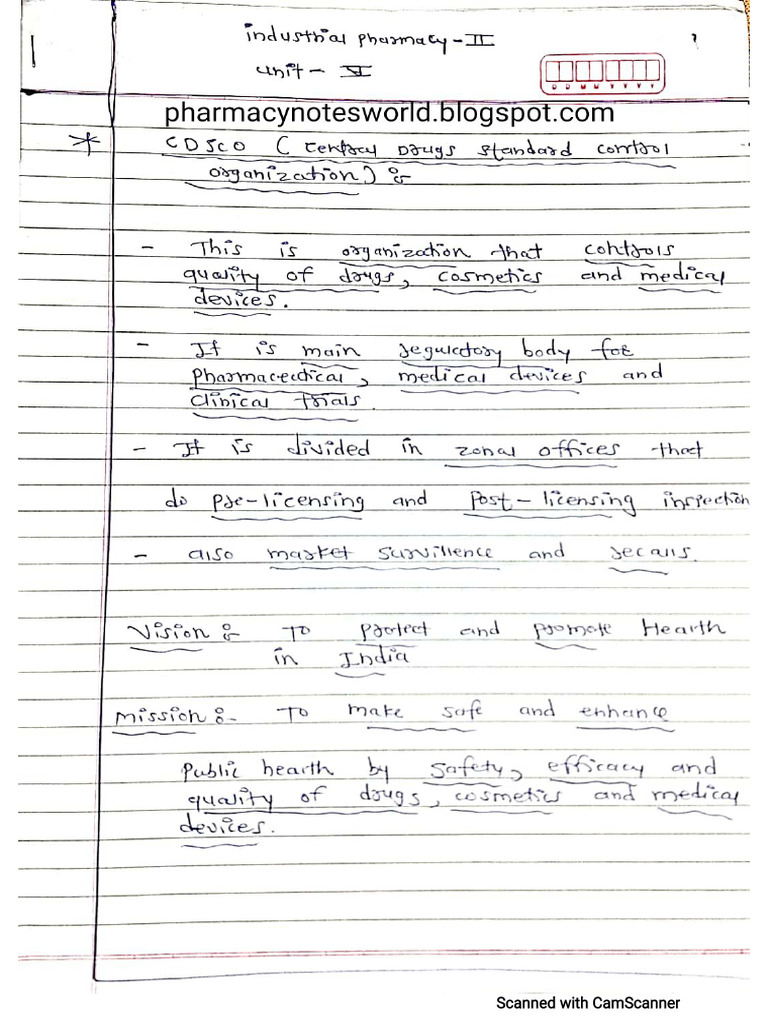 industrial pharmacy - II
1
unit - V
D D M M Y Y Y Y
pharmacynotesworld.blogspot.com
* CDSCO ( Central Drugs standard control
organization) :-
- This is organization that controls
quality of drugs, cosmetics and medical
devices.
- It is main regulatory body for
pharmaceutical, medical devices and
clinical trials.
- It is divided in zonal offices that
do pre-licensing and post-licensing inspection
- also market survillence and recalls.
Vision :- To protect and promote Health
in India
Mission :- To make safe and enhance
public health by safety, efficacy and
quality of drugs, cosmetics and medical
devices.
Scanned with CamScanner